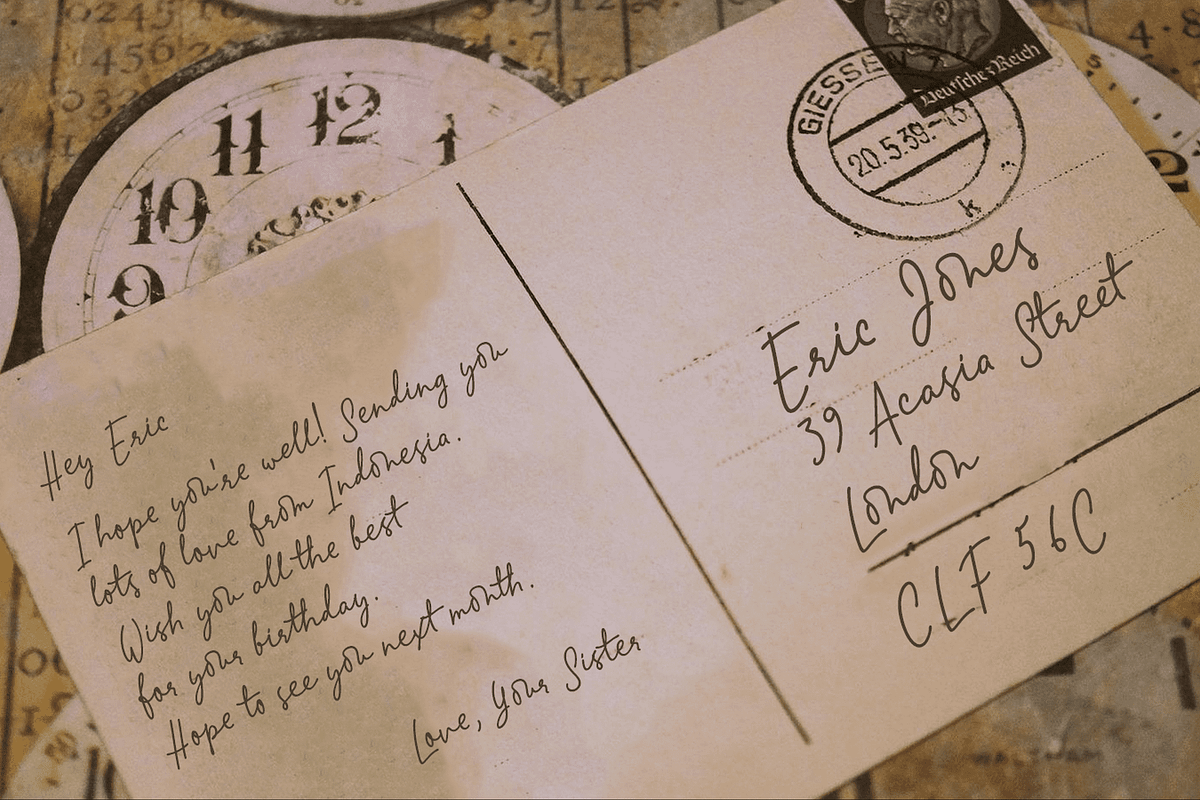 11 12 1
10
9
Hey Eric
I hope you're well! Sending you
lots of love from Indonesia.
Wish you all the best
for your birthday.
Hope to see you next month.
Love, Your Sister
Deutsches Reich
GIESSEN 1
20.5.39.-13
k
Eric Jones
39 Acasia Street
London
CLF 56C